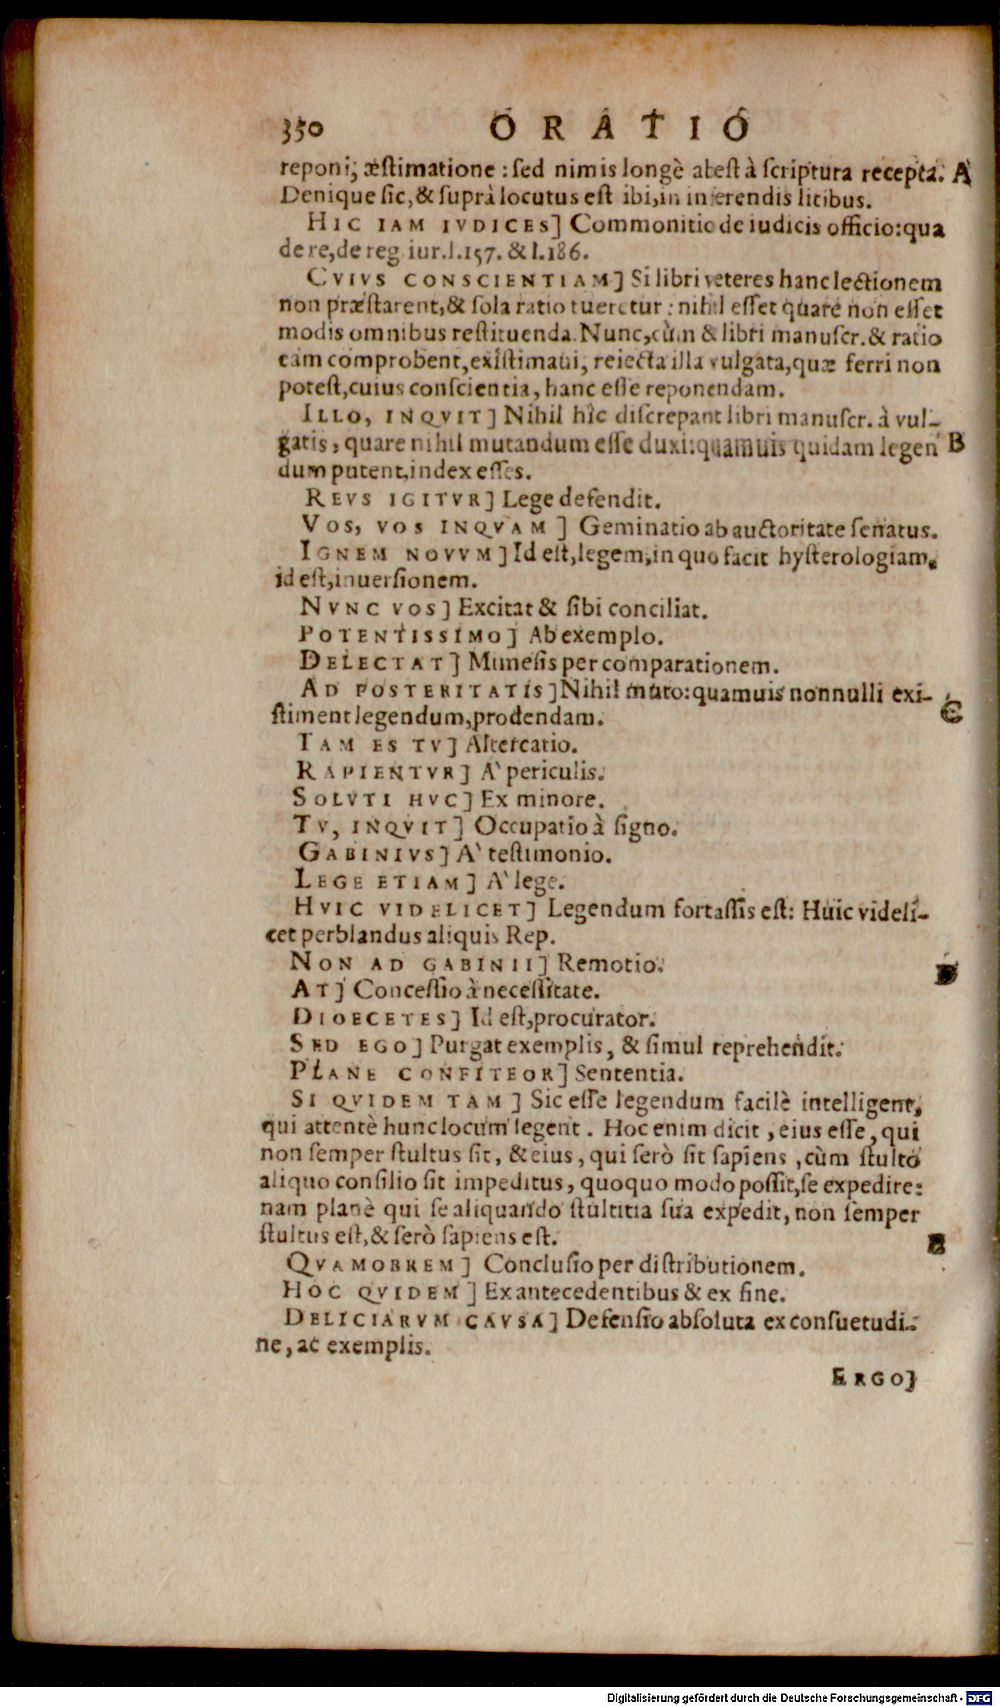 350 ORATIO
reponi, æstimatione : sed nimis longè abest à scriptura recepta. A
Denique sic, & suprà locutus est ibi, in inferendis litibus.
HIC IAM IVDICES] Commonitio de iudicis officio: qua
de re, de reg iur. l. 157. & l. 186.
CVIVS CONSCIENTIAM] Si libri veteres hanc lectionem
non præstarent, & sola ratio tueretur : nihil esset quare non esset
modis omnibus restituenda. Nunc, cùm & libri manuscr. & ratio
eam comprobent, existimaui, reiecta illa vulgata, quæ ferri non
potest, cuius conscientia, hanc esse reponendam.
ILLO, INQVIT] Nihil hîc discrepant libri manuscr. à vul-
gatis, quare nihil mutandum esse duxi: quamuis quidam legen B
dum putent, index esses.
REVS IGITVR] Lege defendit.
VOS, VOS INQVAM] Geminatio ab auctoritate senatus.
IGNEM NOVVM] Id est, legem, in quo facit hysterologiam,
id est, inuersionem.
NVNC VOS] Excitat & sibi conciliat.
POTENTISSIMO] Ab exemplo.
DELECTAT] Mimesis per comparationem.
AD POSTERITATIS] Nihil muto: quamuis nonnulli exi- C
stiment legendum, prodendam.
TAM ES TV] Altercatio.
RAPIENTVR] A` periculis.
SOLVTI HVC] Ex minore.
TV, INQVIT] Occupatio à signo.
GABINIVS] A` testimonio.
LEGE ETIAM] A` lege.
HVIC VIDELICET] Legendum fortassis est: Huic videli-
cet perblandus aliquis Rep.
NON AD GABINII] Remotio. D
AT] Concessio à necessitate.
DIOECETES] Id est, procurator.
SED EGO] Purgat exemplis, & simul reprehendit.
PLANE CONFITEOR] Sententia.
SI QVIDEM TAM] Sic esse legendum facilè intelligent,
qui attentè hunc locum legent. Hoc enim dicit, eius esse, qui
non semper stultus sit, & eius, qui serò sit sapiens, cùm stulto
aliquo consilio sit impeditus, quoquo modo possit, se expedire:
nam planè qui se aliquando stultitia sua expedit, non semper
stultus est, & serò sapiens est. E
QVAMOBREM] Conclusio per distributionem.
HOC QVIDEM] Ex antecedentibus & ex fine.
DELICIARVM CAVSA] Defensio absoluta ex consuetudi-
ne, ac exemplis.
ERGO]
Digitalisierung gefördert durch die Deutsche Forschungsgemeinschaft - DFG